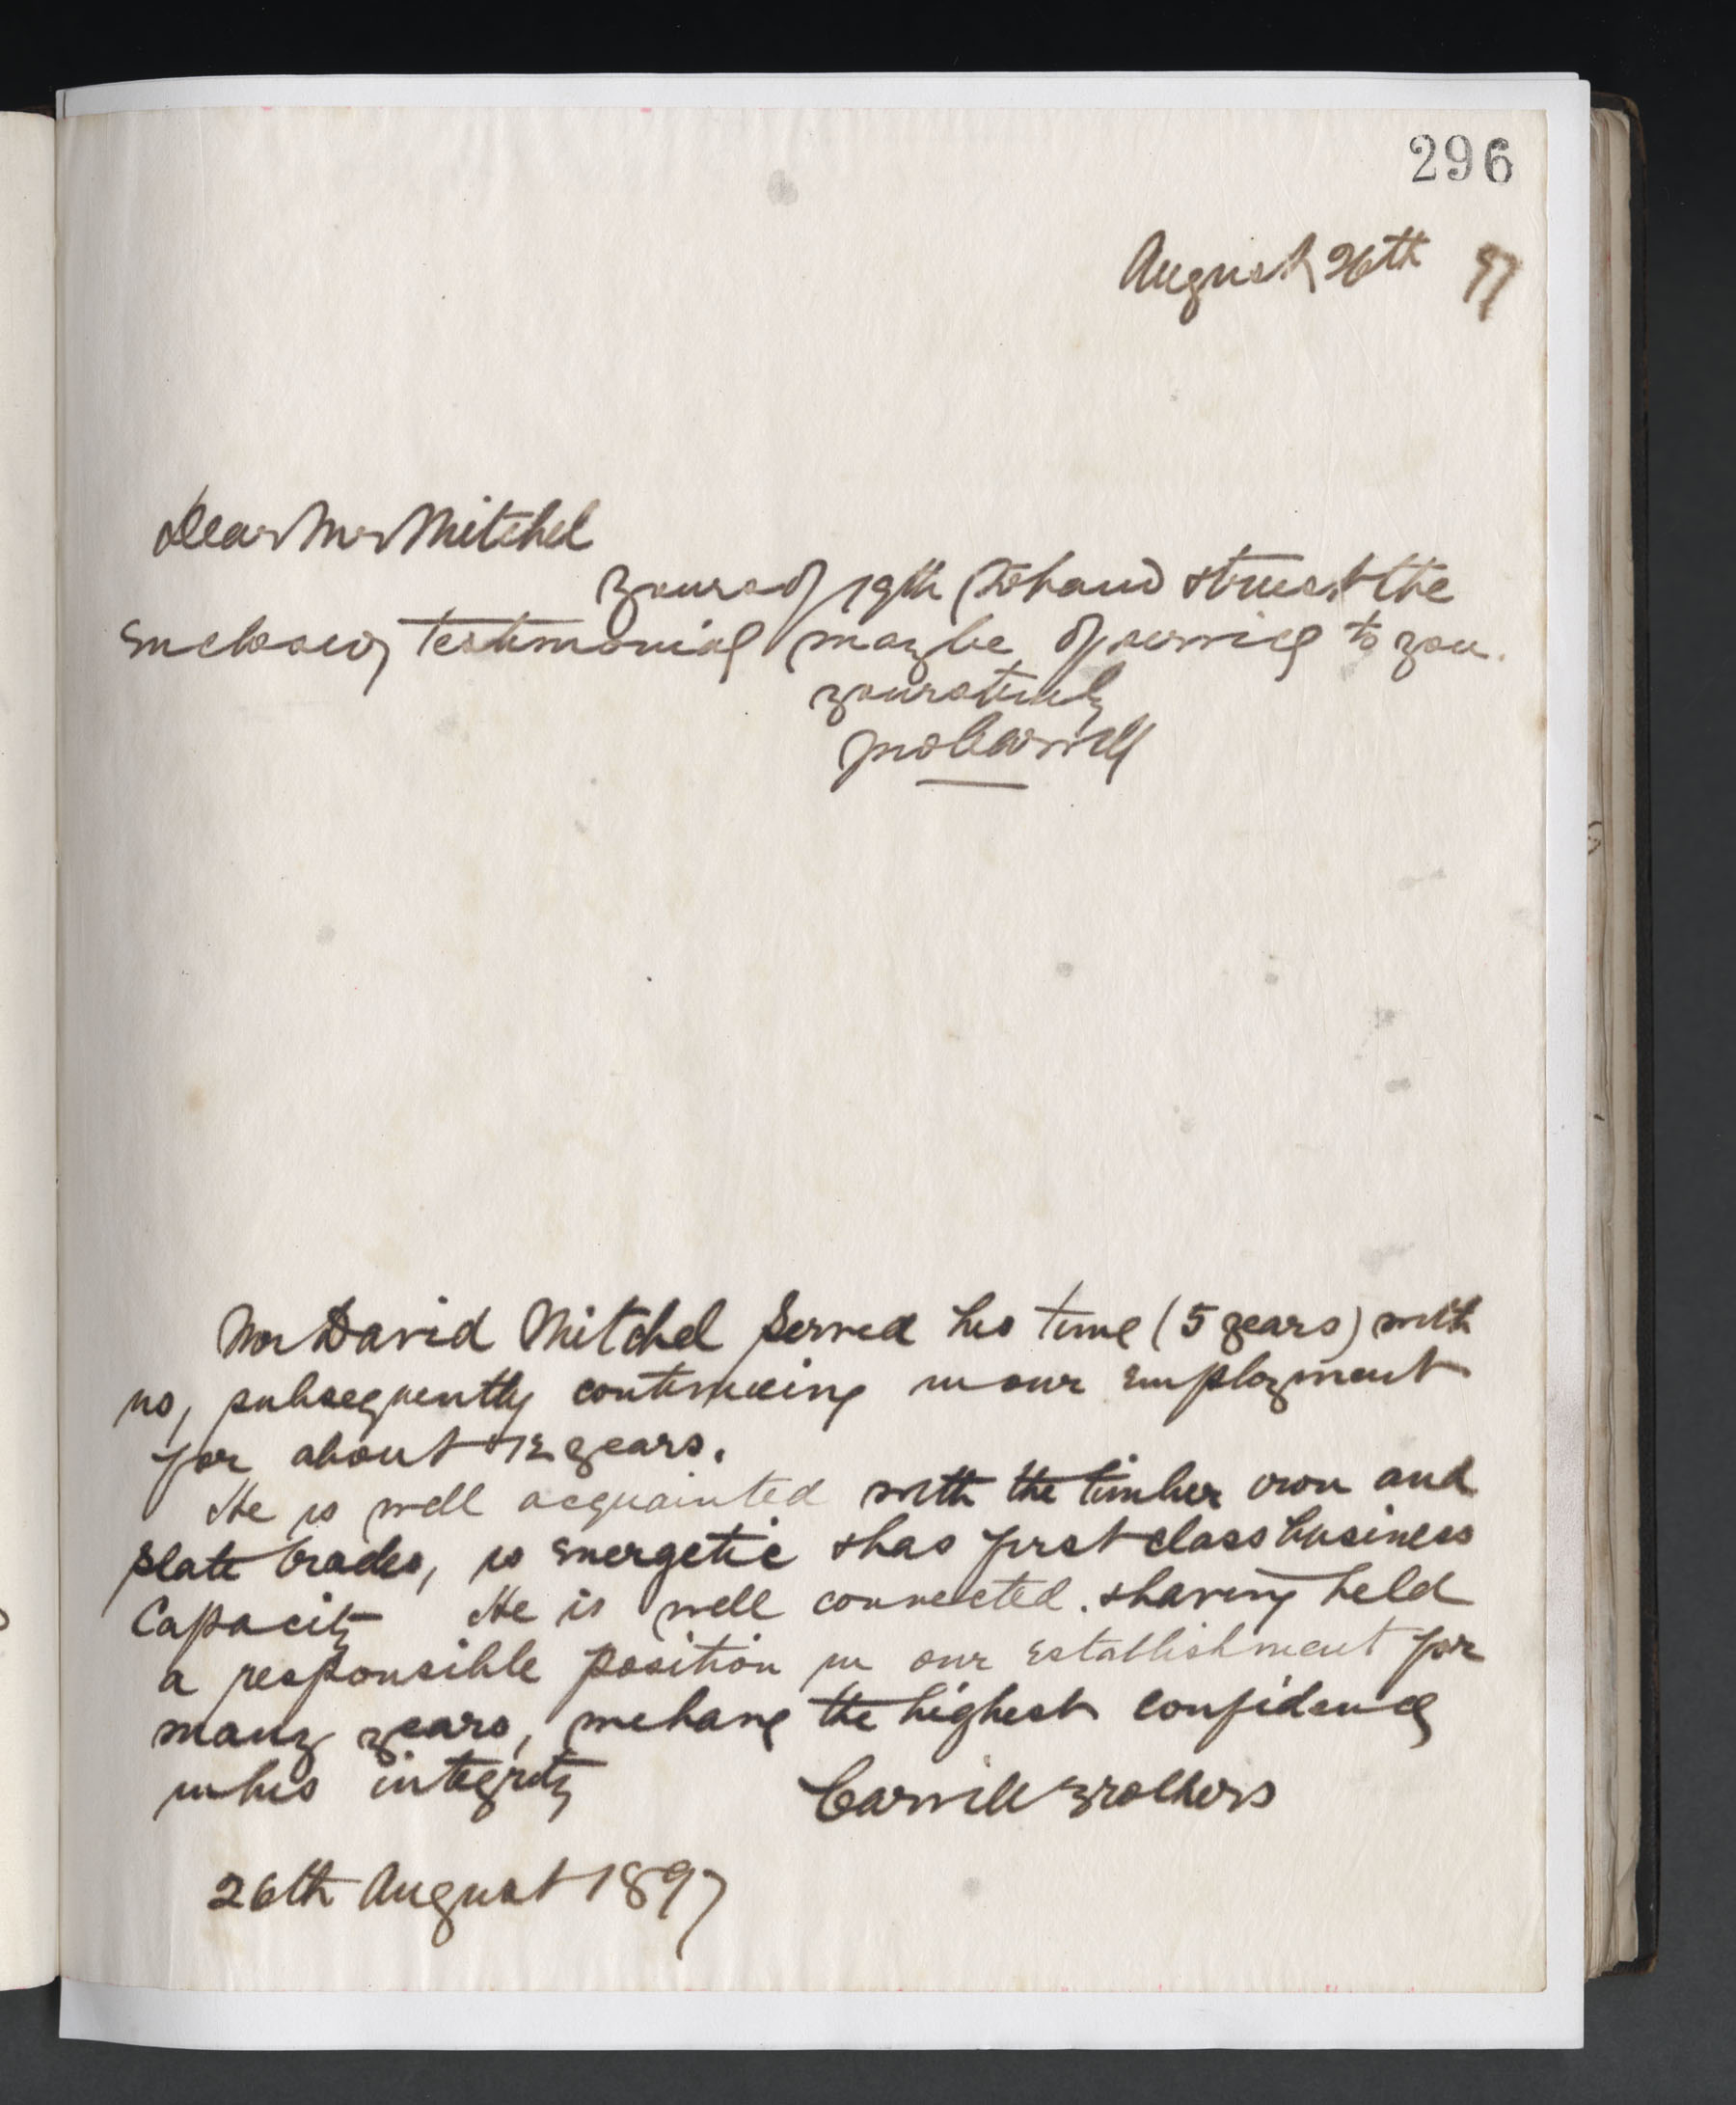 296
August 26th 97
Dear Mr Mitchel
yours of 19th to hand & trust the
enclosed testimonial may be of service to you.
yours truly
Jno Carvill
Mr David Mitchel served his time (5 years) with
us, subsequently continuing in our employment
for about 12 years.
He is well acquainted with the timber iron and
slate trades, is energetic & has first class business
capacity He is well connected. & having held
a responsible position in our establishment for
many years, we have the highest confidence
in his integrity Carvill Brothers
26th August 1897